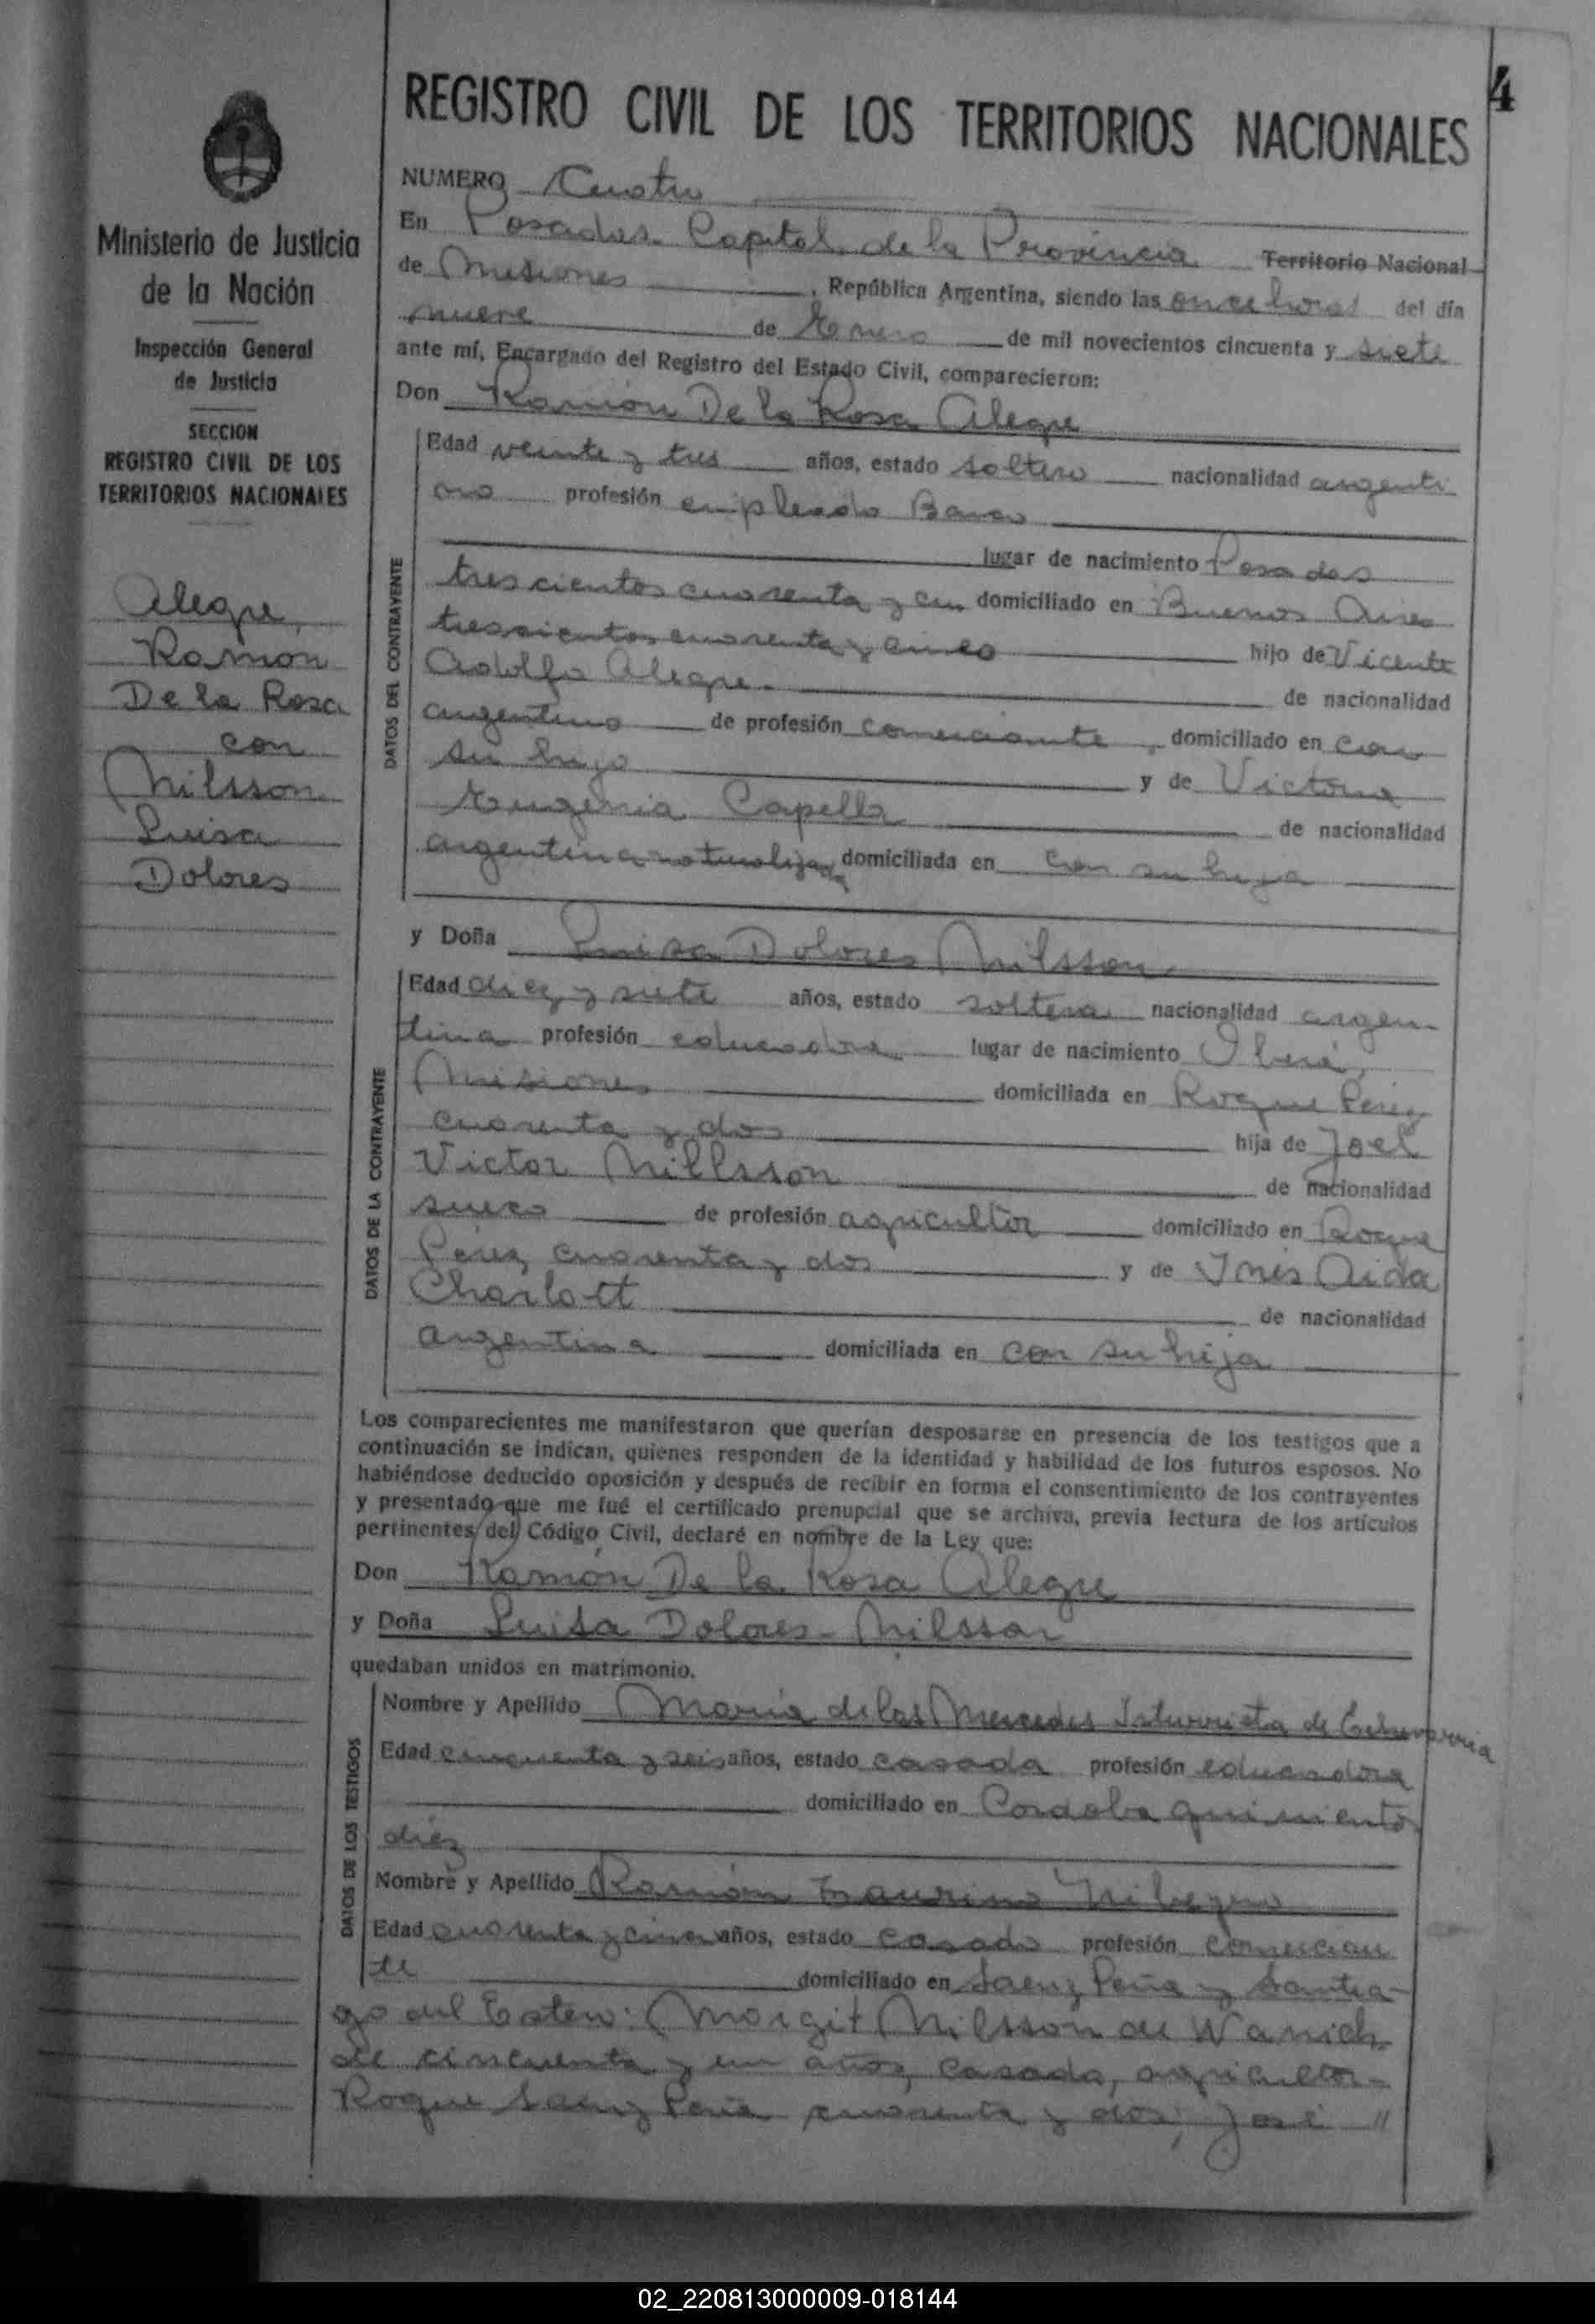 4
REGISTRO CIVIL DE LOS TERRITORIOS NACIONALES
Ministerio de Justicia
de la Nación
Inspección General
de Justicia
SECCION
REGISTRO CIVIL DE LOS
TERRITORIOS NACIONALES
Alegre,
Ramon
De la Rosa
con
Nilsson
Luisa
Dolores
NUMERO Cuatro
En Posadas. Capital de la Provincia Territorio Nacional
de Misiones, República Argentina, siendo las once horas del día
nueve de Enero de mil novecientos cincuenta y siete
ante mí, Encargado del Registro del Estado Civil, comparecieron:
Don Ramón De la Rosa Alegre
DATOS DEL CONTRAYENTE
Edad veinte y tres años, estado soltero nacionalidad argenti
no profesión empleado Banco
lugar de nacimiento Posadas
trescientos cuarenta y domiciliado en Buenos Aires
trescientos cuarenta y cinco hijo de Vicente
Adolfo Alegre. de nacionalidad
argentino de profesión comerciante, domiciliado en con
su hijo y de Victoria
Eugenia Capella de nacionalidad
argentina naturalizada domiciliada en con su hijo
y Doña Luisa Dolores Nilsson
DATOS DE LA CONTRAYENTE
Edad diez y siete años, estado soltera nacionalidad argen
tina profesión educadora lugar de nacimiento Oberá,
Misiones domiciliada en Roque Perez
cuarenta y dos hija de Joel
Victor Nillsson de nacionalidad
sueco de profesión agricultor domiciliado en Roque
Pérez cuarenta y dos y de Inés Aida
Charlott de nacionalidad
argentina domiciliada en con su hija
Los comparecientes me manifestaron que querían desposarse en presencia de los testigos que a
continuación se indican, quienes responden de la identidad y habilidad de los futuros esposos. No
habiéndose deducido oposición y después de recibir en forma el consentimiento de los contrayentes
y presentado que me fué el certificado prenupcial que se archiva, previa lectura de los artículos
pertinentes del Código Civil, declaré en nombre de la Ley que:
Don Ramón De la Rosa Alegre
y Doña Luisa Dolores Nilsson
quedaban unidos en matrimonio.
DATOS DE LOS TESTIGOS
Nombre y Apellido María de las Mercedes Isturrieta de Echevarria
Edad cincuenta y seis años, estado casada profesión educadora
domiciliado en Cordoba quinientos
diéz
Nombre y Apellido Ramón
Edad cuarenta y cinco años, estado casado profesión comercian
te domiciliado en Saenz Peña y Santia-
go del Estero: Margit Nilsson de Wanich
de cincuenta y un años, casada, agricultor-
Roque Saenz Peña cuarenta y dos; José "
02_220813000009-018144